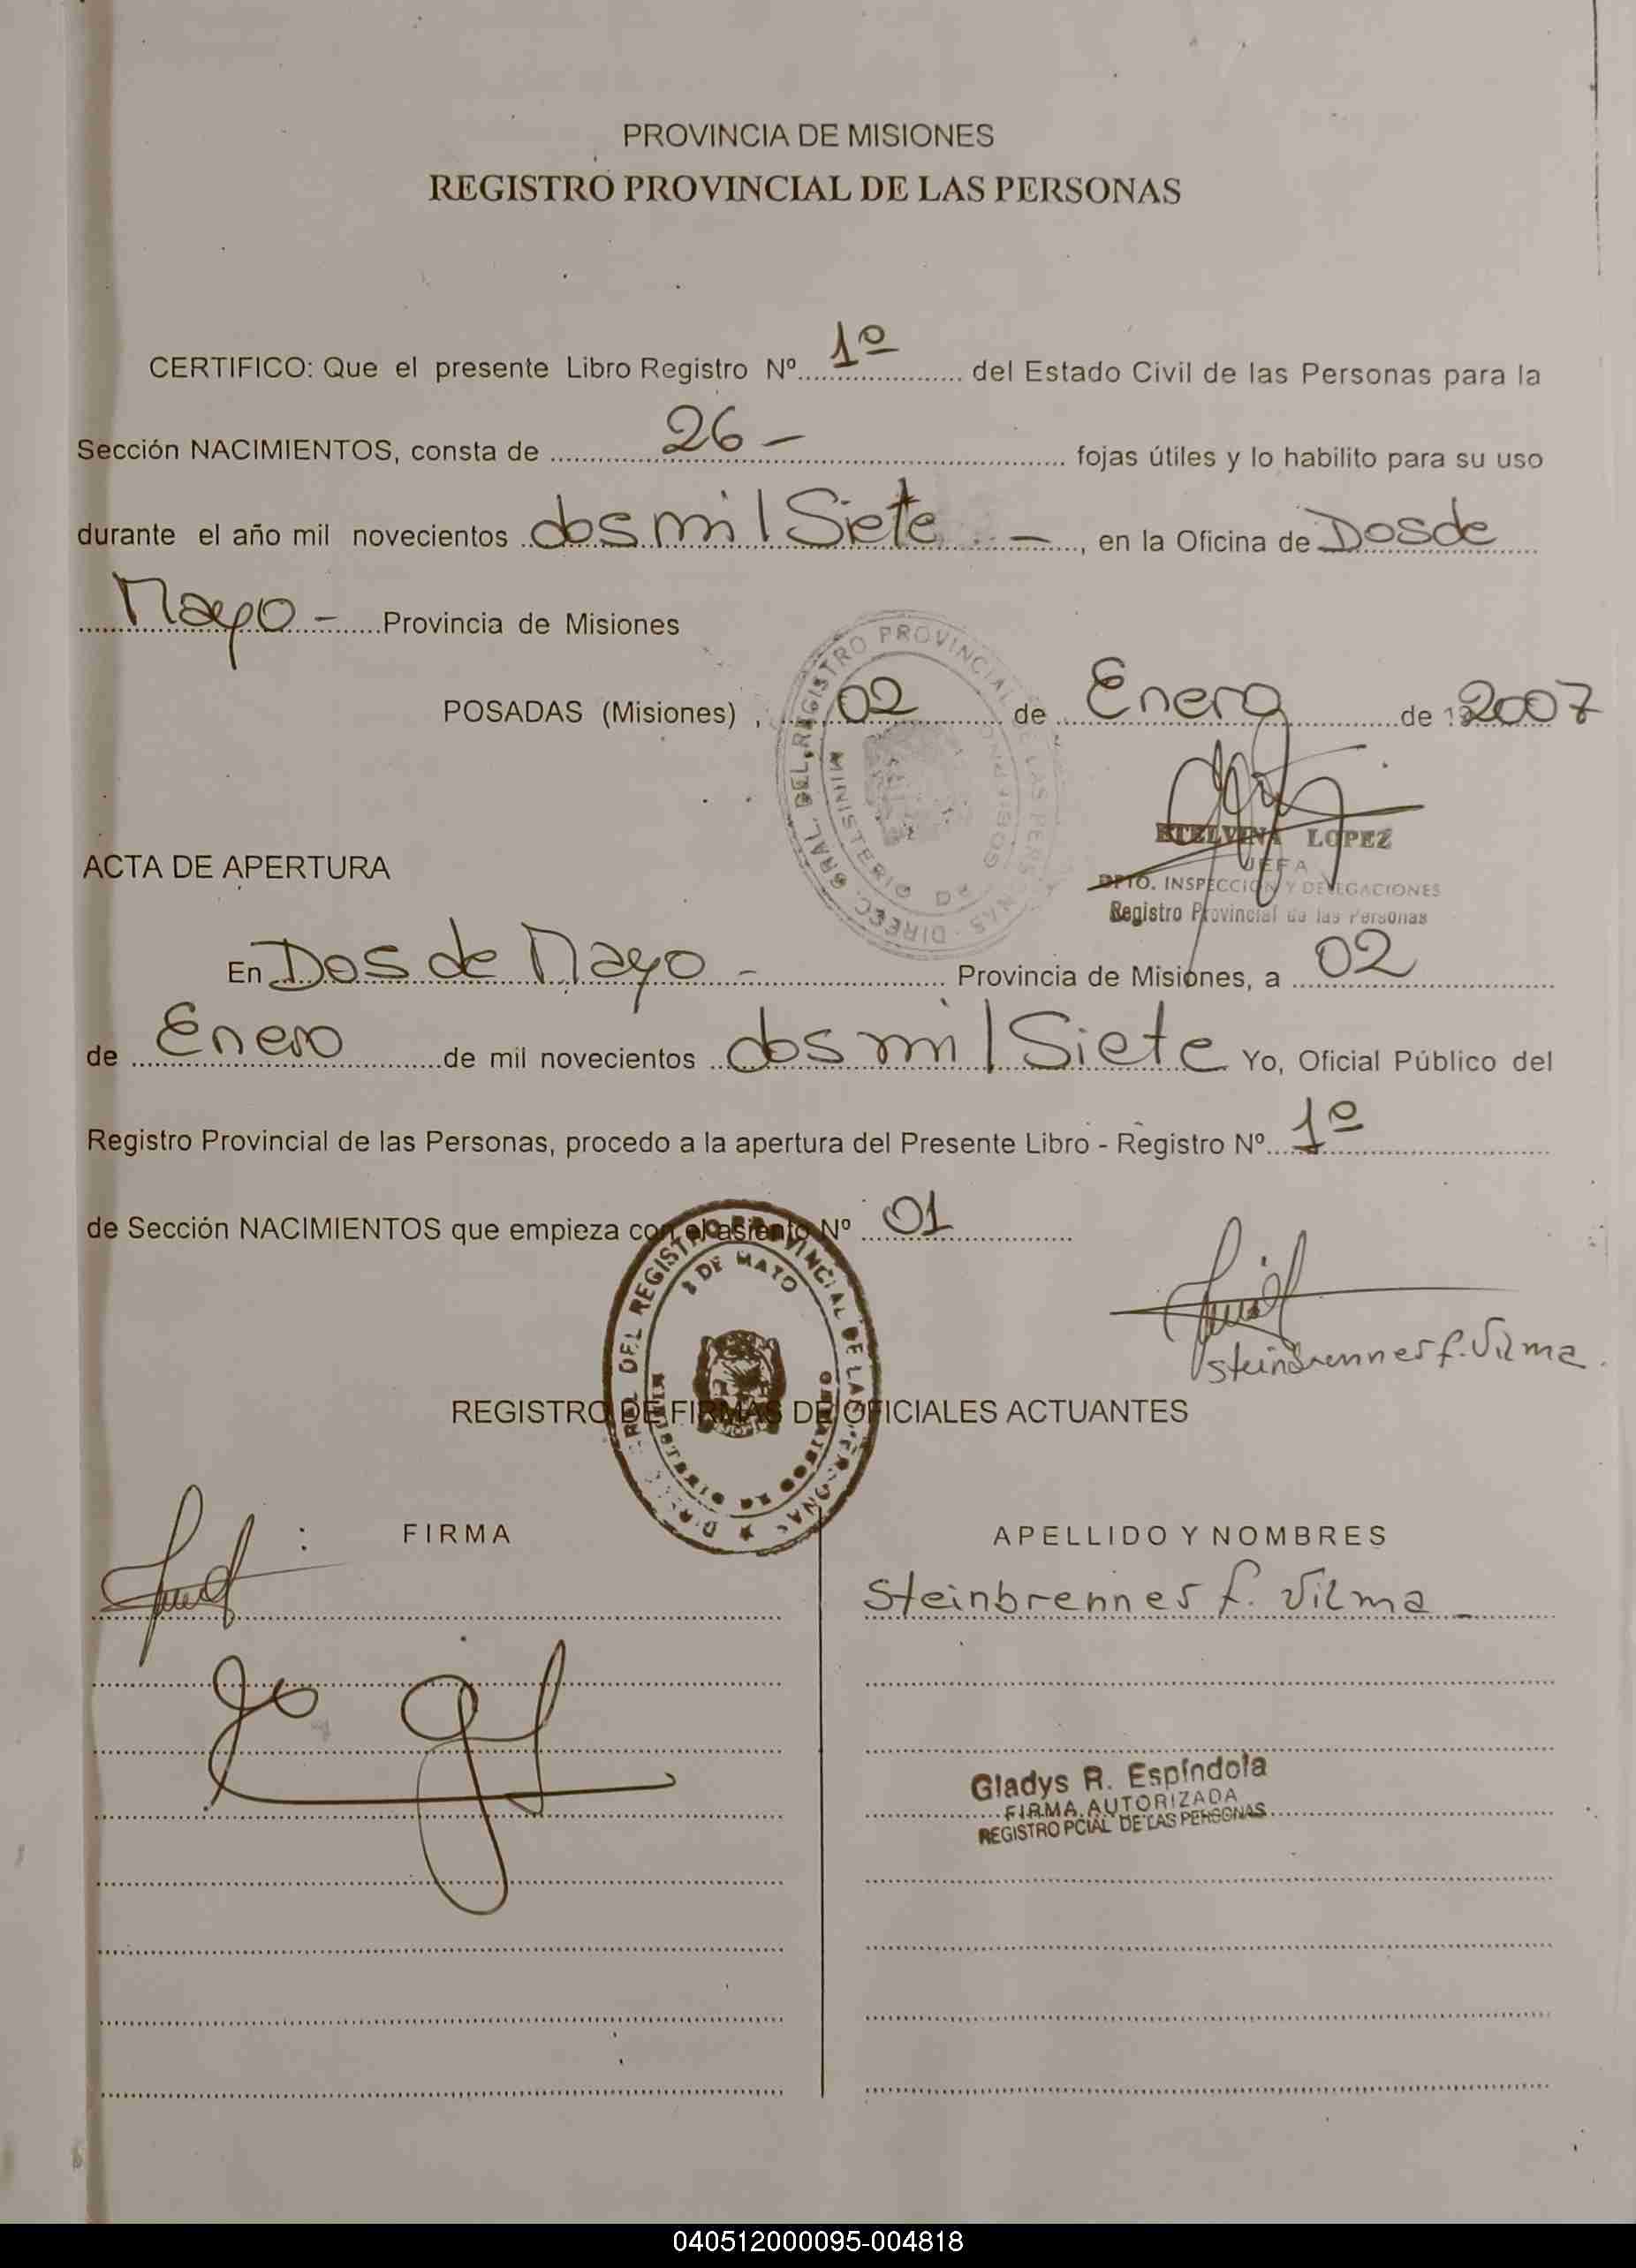 PROVINCIA DE MISIONES
REGISTRO PROVINCIAL DE LAS PERSONAS
CERTIFICO: Que el presente Libro Registro Nº 1º del Estado Civil de las Personas para la
Sección NACIMIENTOS, consta de 26 - fojas útiles y lo habilito para su uso
durante el año mil novecientos dos mil Siete -, en la Oficina de Dos de
Mayo - Provincia de Misiones
POSADAS (Misiones), 02 de Enero de 2007
DIRECC. GRAL. DEL REGISTRO PROVINCIAL DE LAS PERSONAS
MINISTERIO DE GOBIERNO
ESTELVINA LOPEZ
JEFA
DPTO. INSPECCION Y DELEGACIONES
Registro Provincial de las Personas
ACTA DE APERTURA
En Dos de Mayo - Provincia de Misiones, a 02
de Enero de mil novecientos dos mil Siete Yo, Oficial Público del
Registro Provincial de las Personas, procedo a la apertura del Presente Libro - Registro Nº 1º
de Sección NACIMIENTOS que empieza con el asiento Nº 01
DEL REGISTRO PROVINCIAL DE LAS PERSONAS
2 DE MAYO
Steinbrenner f. Vilma.
REGISTRO DE FIRMAS DE OFICIALES ACTUANTES
FIRMA
APELLIDO Y NOMBRES
Steinbrenner f. Vilma -
Gladys R. Espíndola
FIRMA AUTORIZADA
REGISTRO PCIAL DE LAS PERSONAS
040512000095-004818